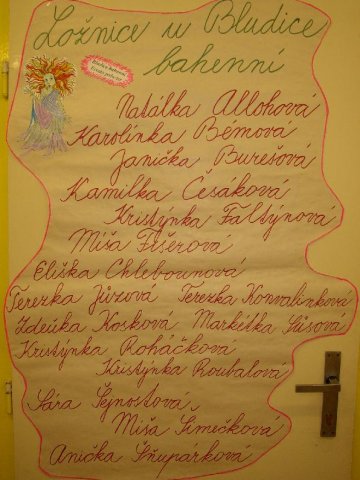 Ložnice u Bludice
bahenní
Natálka Allohová
Karolínka Bémová
Janička Burešová
Kamilka Česáková
Kristýnka Faltýnová
Míša Fišerová
Eliška Chlebounová
Terezka Jůzová Terezka Konvalinková
Zdeňka Kosková Markétka
Kristýnka Roháčková
Kristýnka Roubalová
Sára Šejnostová
Míša Šimičková
Anička Šňupárková